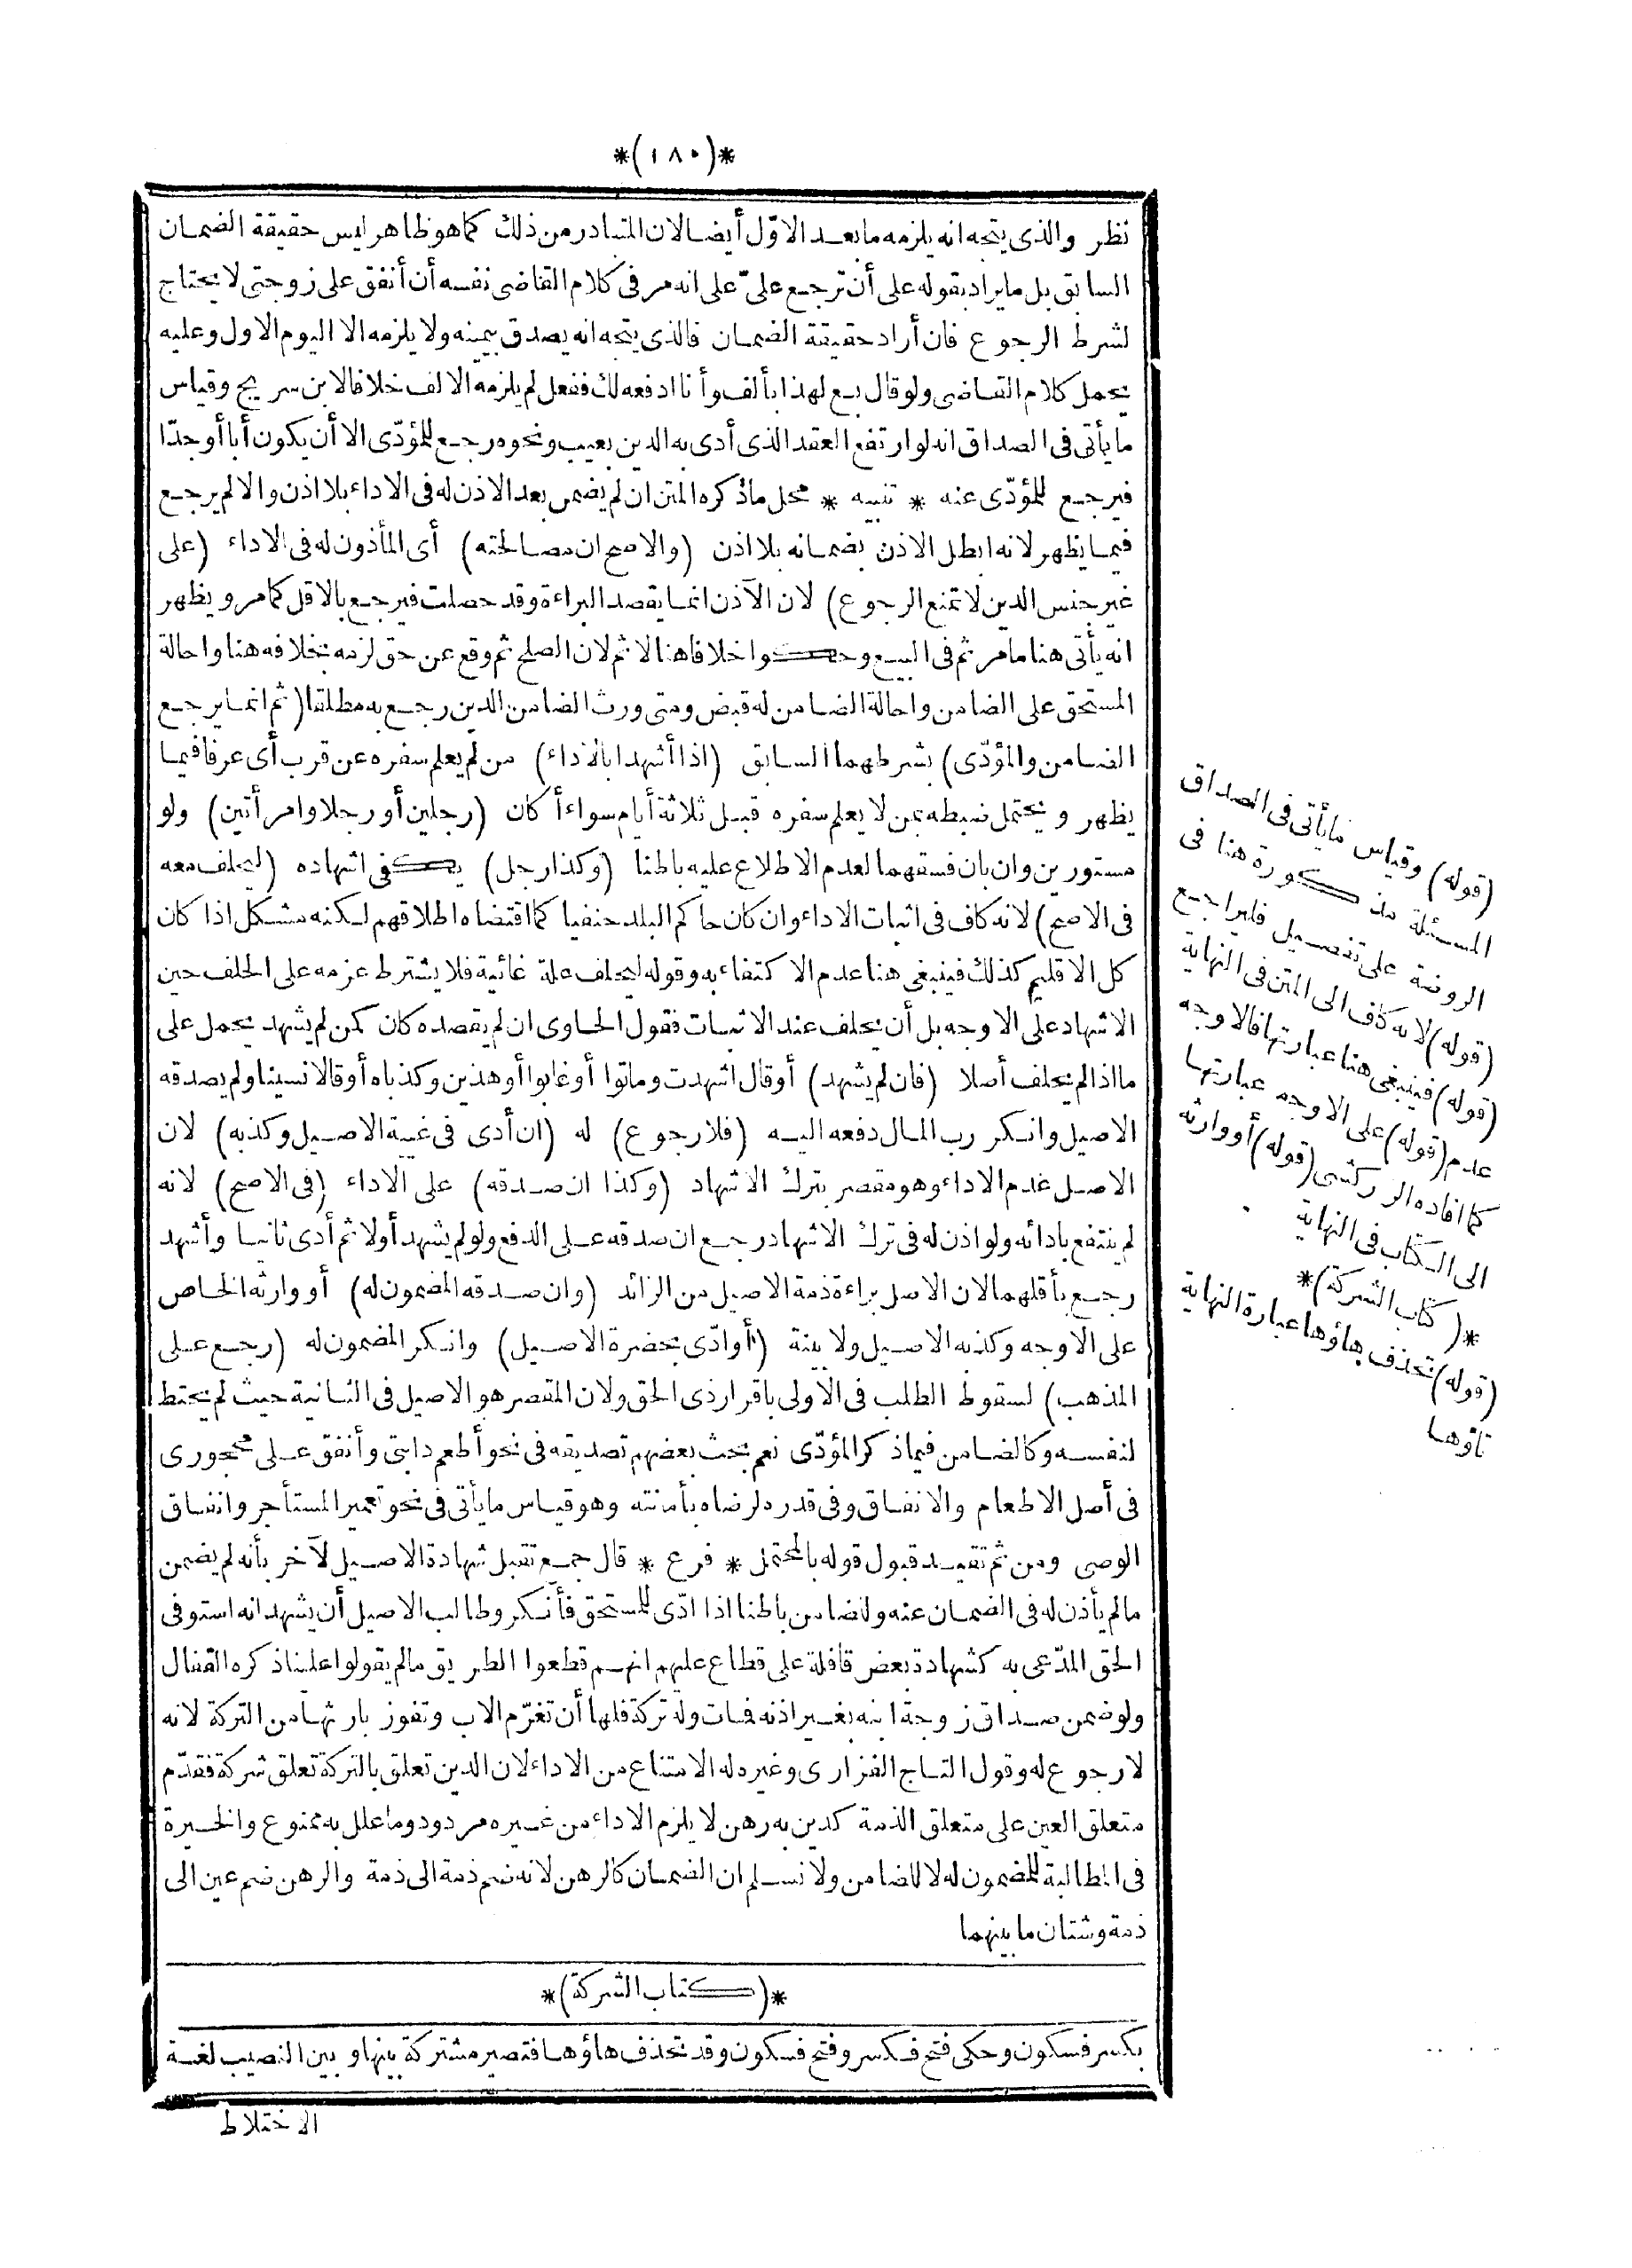 *(١٨٠)*
نظر والذى يتجه انه يلزمه ما بعد الاوّل أيضا لان المتبادر من ذلك كما هو ظاهر ليس حقيقة الضمان
السابق بل ما يراد بقوله على أن ترجع علىّ على انه مر فى كلام القاضى نفسه أن أنفق على زوجتى لا يحتاج
لشرط الرجوع فان أراد حقيقة الضمان فالذى يتجه انه يصدق بيمينه ولا يلزمه الا اليوم الاول وعليه
يحمل كلام القاضى ولو قال بع لهذا بألف وأنا ادفعه لك ففعل لم يلزمه الالف خلافا لابن سريج وقياس
ما يأتى فى الصداق انه لو ارتفع العقد الذى أدى به الدين بعيب ونحوه رجع للمؤدّى الا أن يكون أبا أو جدّا
فيرجع للمؤدّى عنه * تنبيه * محل ماذكره المتن ان لم يضمن بعد الاذن له فى الاداء بلا اذن والا لم يرجع
فيما يظهر لانه ابطل الاذن بضمانه بلا اذن (والاصح ان مصالحته) أى المأذون له فى الاداء (على
غير جنس الدين لا تمنع الرجوع) لان الآذن انما يقصد البراءة وقد حصلت فيرجع بالاقل كما مر ويظهر
انه يأتى هنا ما مر ثم فى البيع وحكوا خلافا هنا لا ثم لان الصلح ثم وقع عن حق لزمه بخلافه هنا واحالة
المستحق على الضامن واحالة الضامن له قبض ومتى ورث الضامن الدين رجع به مطلقا (ثم انما يرجع
الضامن والمؤدّى) بشرطهما السابق (اذا أشهدا بالاداء) من لم يعلم سفره عن قرب أى عرفا فيما
يظهر ويحتمل ضبطه بمن لا يعلم سفره قبل ثلاثة أيام سواء أكان (رجلين أو رجلا وامرأتين) ولو
مستورين وان بان فسقهما لعدم الاطلاع عليه باطنا (وكذا رجل) يكفى اشهاده (ليحلف معه
فى الاصح) لانه كاف فى اثبات الاداء وان كان حاكم البلد حنفيا كما اقتضاه اطلاقهم لكنه مشكل اذا كان
كل الاقليم كذلك فينبغى هنا عدم الاكتفاء به وقوله ليحلف علة غائية فلا يشترط عزمه على الحلف حين
الاشهاد على الاوجه بل أن يحلف عند الاثبات فقول الحاوى ان لم يقصده كان كمن لم يشهد يحمل على
ما اذا لم يحلف أصلا (فان لم يشهد) أو قال اشهدت وماتوا أو غابوا أو هذين وكذباه أو قالا نسينا ولم يصدقه
الاصيل وانكر رب المال دفعه اليه (فلا رجوع) له (ان أدى فى غيبة الاصيل وكذبه) لان
الاصل عدم الاداء وهو مقصر بترك الاشهاد (وكذا ان صدقه) على الاداء (فى الاصح) لانه
لم ينتفع بادائه ولو اذن له فى ترك الاشهاد رجع ان صدقه على الدفع ولو لم يشهد أولا ثم أدى ثانيا وأشهد
رجع بأقلهما لان الاصل براءة ذمة الاصيل من الزائد (وان صدقه المضمون له) أو وارثه الخاص
على الاوجه وكذبه الاصيل ولا بينة (أو ادّى بحضرة الاصيل) وانكر المضمون له (رجع على
المذهب) لسقوط الطلب فى الاولى باقرار ذى الحق ولان المقصر هو الاصيل فى الثانية حيث لم يحتط
لنفسه وكالضامن فيما ذكر المؤدّى نعم بحث بعضهم تصديقه فى نحو أطعم دابتى وأنفق على محجورى
فى أصل الاطعام والانفاق وفى قدره لرضاه بأمانته وهو قياس ما يأتى فى نحو تعمير المستأجر وانفاق
الوصى ومن ثم تقيد قبول قوله بالمحتمل * فرع * قال جمع تقبل شهادة الاصيل لآخر بأنه لم يضمن
ما لم يأذن له فى الضمان عنه ولضامن باطنا اذا ادّى للمستحق فأنكر وطالب الاصيل أن يشهد انه استوفى
الحق المدّعى به كشهادة بعض قافلة على قطاع عليهم انهم قطعوا الطريق ما لم يقولوا علينا ذكره القفال
ولو ضمن صداق زوجة ابنه بغير اذنه فمات وله تركة فلها أن تغرّم الاب وتفوز بارثها من التركة لانه
لا رجوع له وقول التاج الفزارى وغيره له الامتناع من الاداء لان الدين تعلق بالتركة تعلق شركة فقدّم
متعلق العين على متعلق الذمة كدين به رهن لا يلزم الاداء من غيره مردود وما علل به ممنوع والخيرة
فى المطالبة للمضمون له لا للضامن ولا نسلم ان الضمان كالرهن لانه ضم ذمة الى ذمة والرهن ضم عين الى
ذمة وشتان ما بينهما
*(كتاب الشركة)*
بكسر فسكون وحكى فتح فكسر وفتح فسكون وقد تحذف هاؤها فتصير مشتركة بينها وبين النصيب لغة
الاختلاط
(قوله) وقياس ما يأتى فى الصداق
المسئلة مذكورة هنا فى
الروضة على تفصيل فليراجع
(قوله) لانه كاف الى المتن فى النهاية
(قوله) فينبغى هنا عبارتها فالاوجه
عدم (قوله) على الاوجه عبارتها
كما افاده الزركشى (قوله) أو وارثه
الى الكتاب فى النهاية
*(كتاب الشركة)*
(قوله) تحذف هاؤها عبارة النهاية
تاؤها